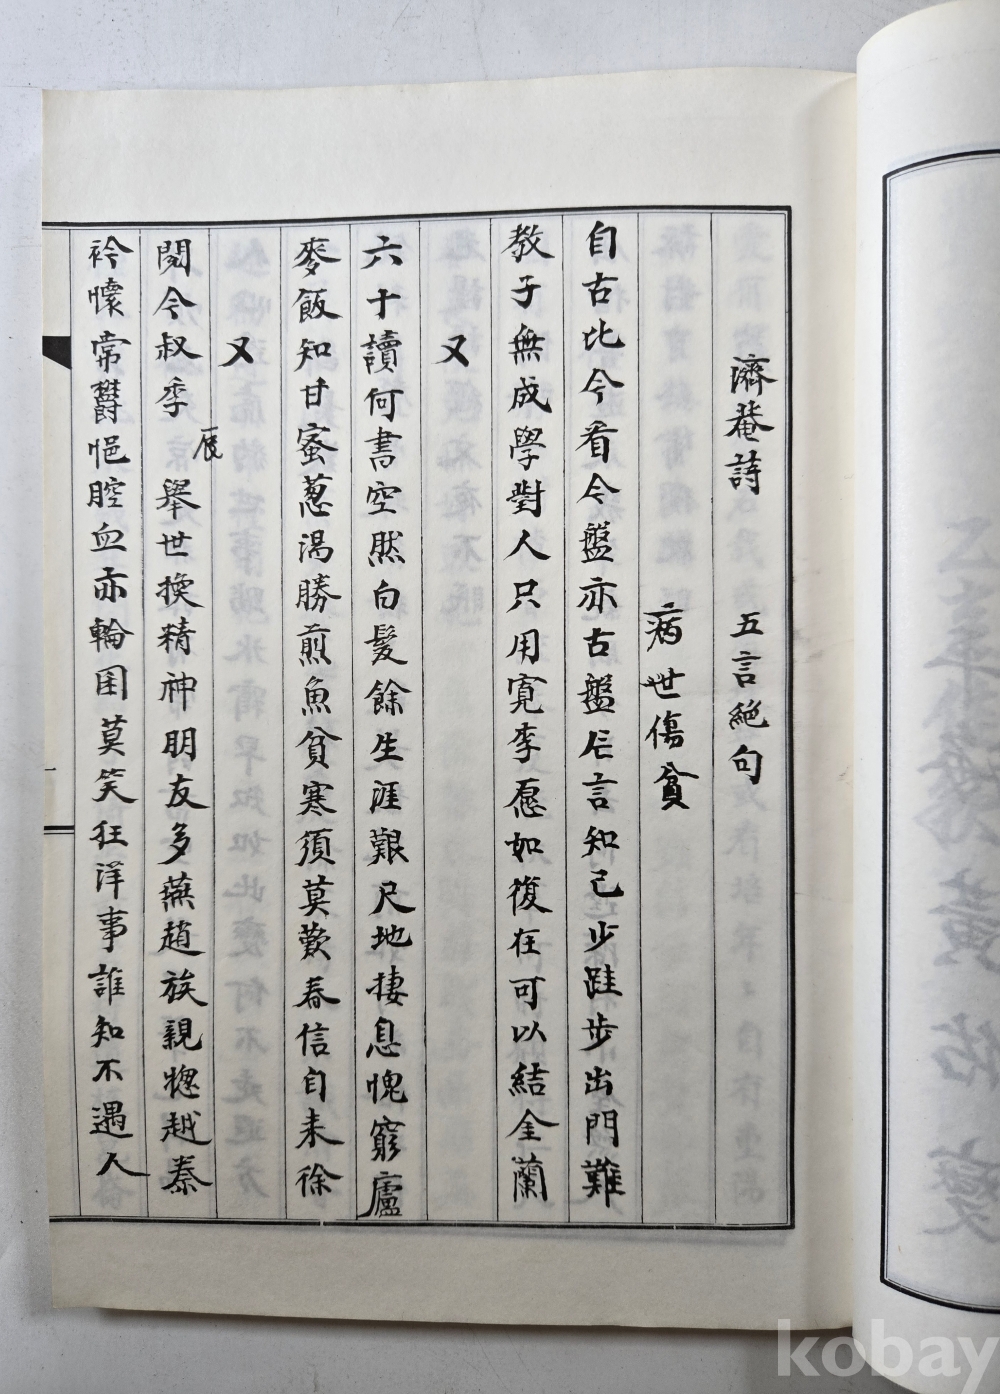 濟菴詩 五言絶句
病世傷貧
自古比今看今盤亦古盤 言知己少跬步出門難
教子無成學對人只用寬李愿如復在可以結金蘭
又
六十讀何書空然白髮餘生涯艱尺地捿息愧窮廬
麥飯知甘蜜葱湯勝煎魚貧寒須莫歎春信自来徐
又
閱今叔季辰擧世換精神朋友多燕趙族親揔越秦
衿懷常欝悒腔血亦輪囷莫笑狂洋事誰知不遇人
kobay